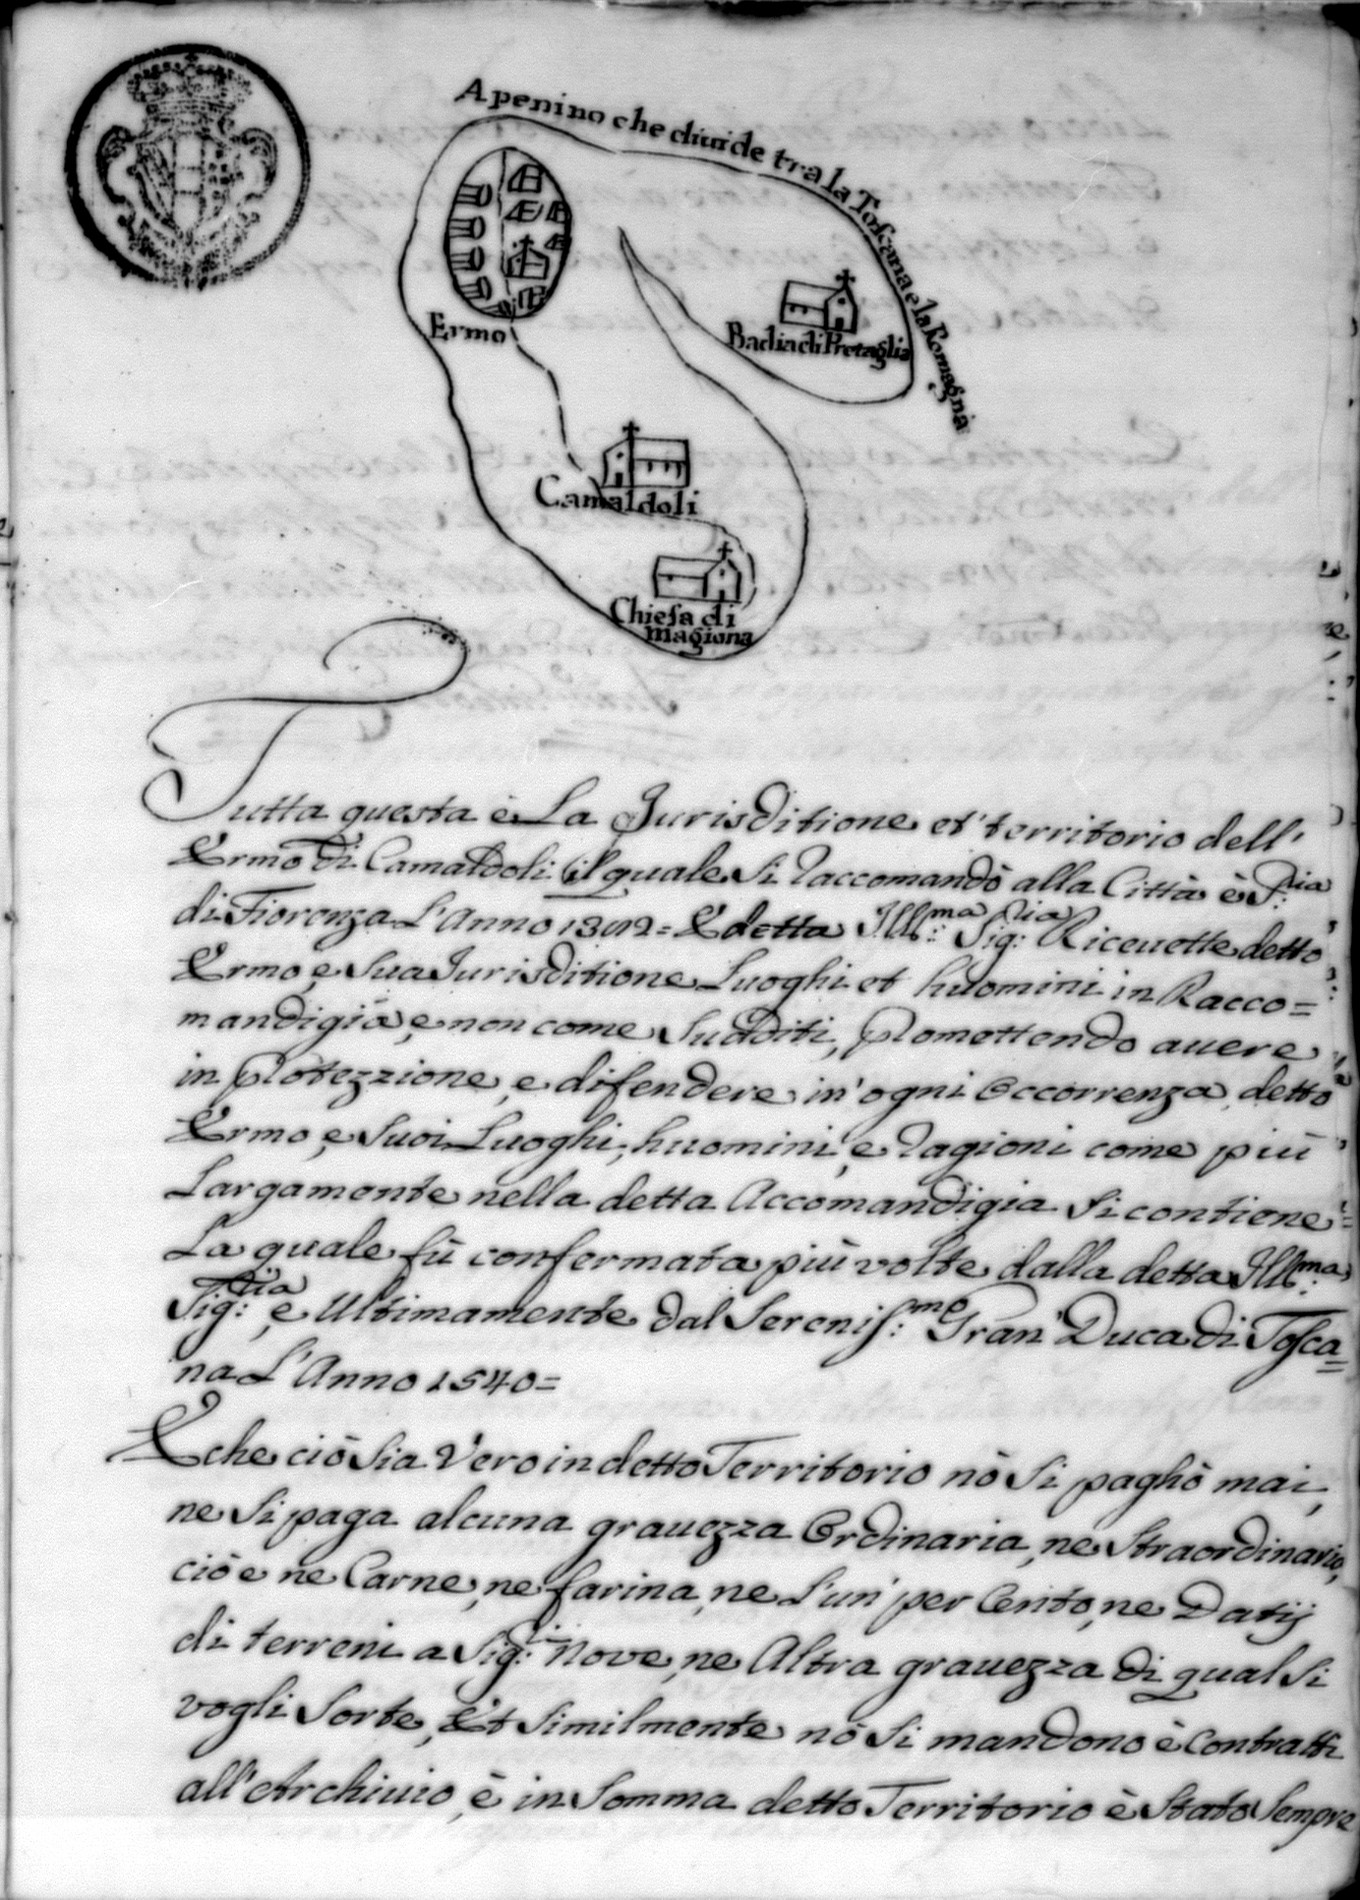 Apenino che diuide tra la Toscana e la Romagna
Ermo
Badia di Prataglia
Camaldoli
Chiesa di
magiona
Tutta questa è La Jurisditione et' territorio dell'
Ermo di Camaldoli il quale si raccomandò alla Città è Sria
di Fiorenza L'Anno 1382= E detta Ill:ma Sig:ria Riceuette detto
Ermo, e sua Jurisditione Luoghi et huomini in Racco=
mandigia, e non come Sudditi, Promettendo auere
in Protezzione, e difendere in' ogni Occorrenza detto
Ermo, e suoi Luoghi, huomini, e ragioni come più
Largamente nella detta Accomandigia si contiene
La quale fù confermata più volte dalla detta Ill:ma
Sig:ria, e Ultimamente dal Serenis:mo Gran' Duca di Tosca=
na L'Anno 1540=
E che ciò sia Vero in detto Territorio nō si paghò mai,
ne si paga alcuna grauezza Ordinaria, ne straordinaria,
ciò e ne Carne, ne farina, ne L'un' per Cento, ne Datij
di terreni a Sig:i Nove, ne Altra grauezza di qual si
vogli sorte, Et similmente nō si mandono è Contratti
all'Archiuio, è in somma detto Territorio è stato sempre